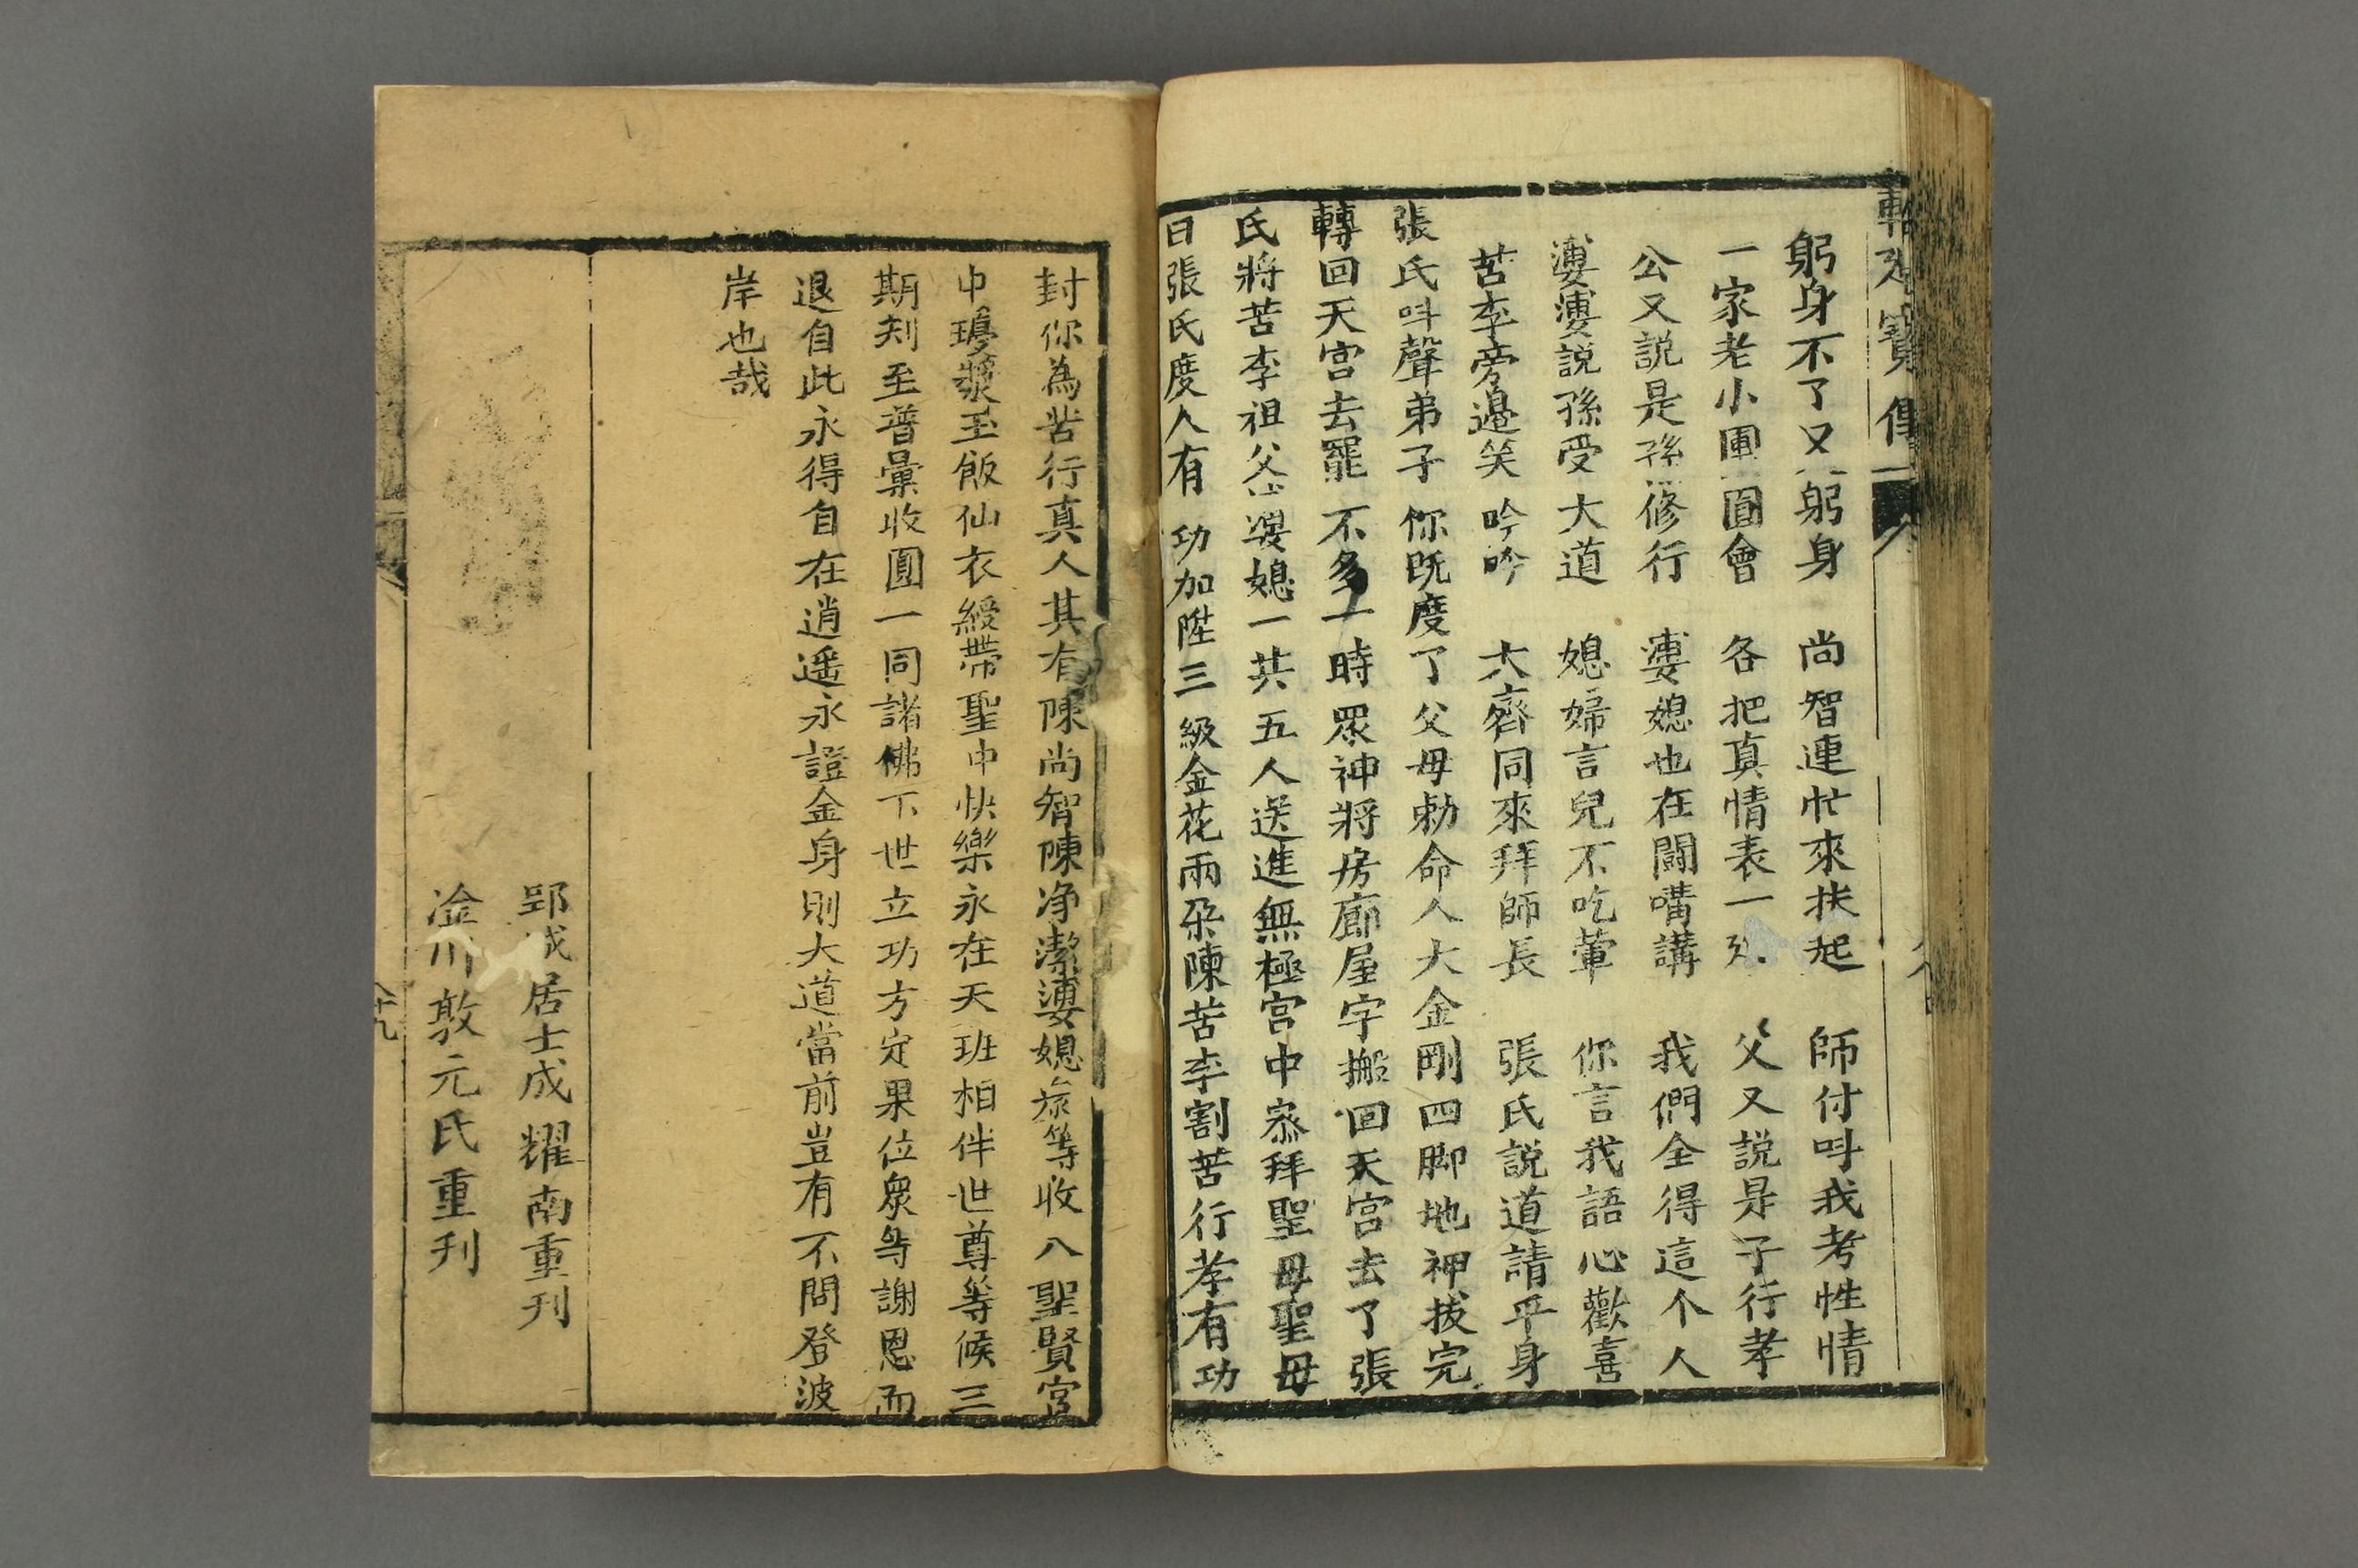 寳傳
躬身不了又躬身　尚智連忙來扶起　師付呌我考性情
一家老小團圓會　各把真情表一　父又説是子行孝
公又説是孫修行　婆媳也在鬪嘴講　我們全得這个人
婆婆説孫受大道　媳婦言兒不吃葷　你言我語心歡喜
苦李旁邉笑吟吟　大齊同來拜師長　張氏説道請平身
張氏呌聲弟子你既度了父母勅命人大金剛四脚地神拔完
轉回天宫去罷不多一時眾神將房廊屋宇搬回天宫去了張
氏將苦李祖父婆媳一共五人送進無極宫中叅拜聖母聖母
曰張氏度人有功加陞三級金花兩朶陳苦李割苦行孝有功
封你為苦行真人其有陳尚智陳净潔婆媳等收入聖賢宫
中瓊漿玉飯仙衣綬帶聖中快樂永在天班相伴世尊等候三
期刼至普彙收圓一同諸佛下世立功方定果位衆等謝恩而
退自此永得自在逍遥永證金身則大道當前豈有不問登波
岸也哉
郢城居士成耀南重刊
淦川敦元氏重刊
十九